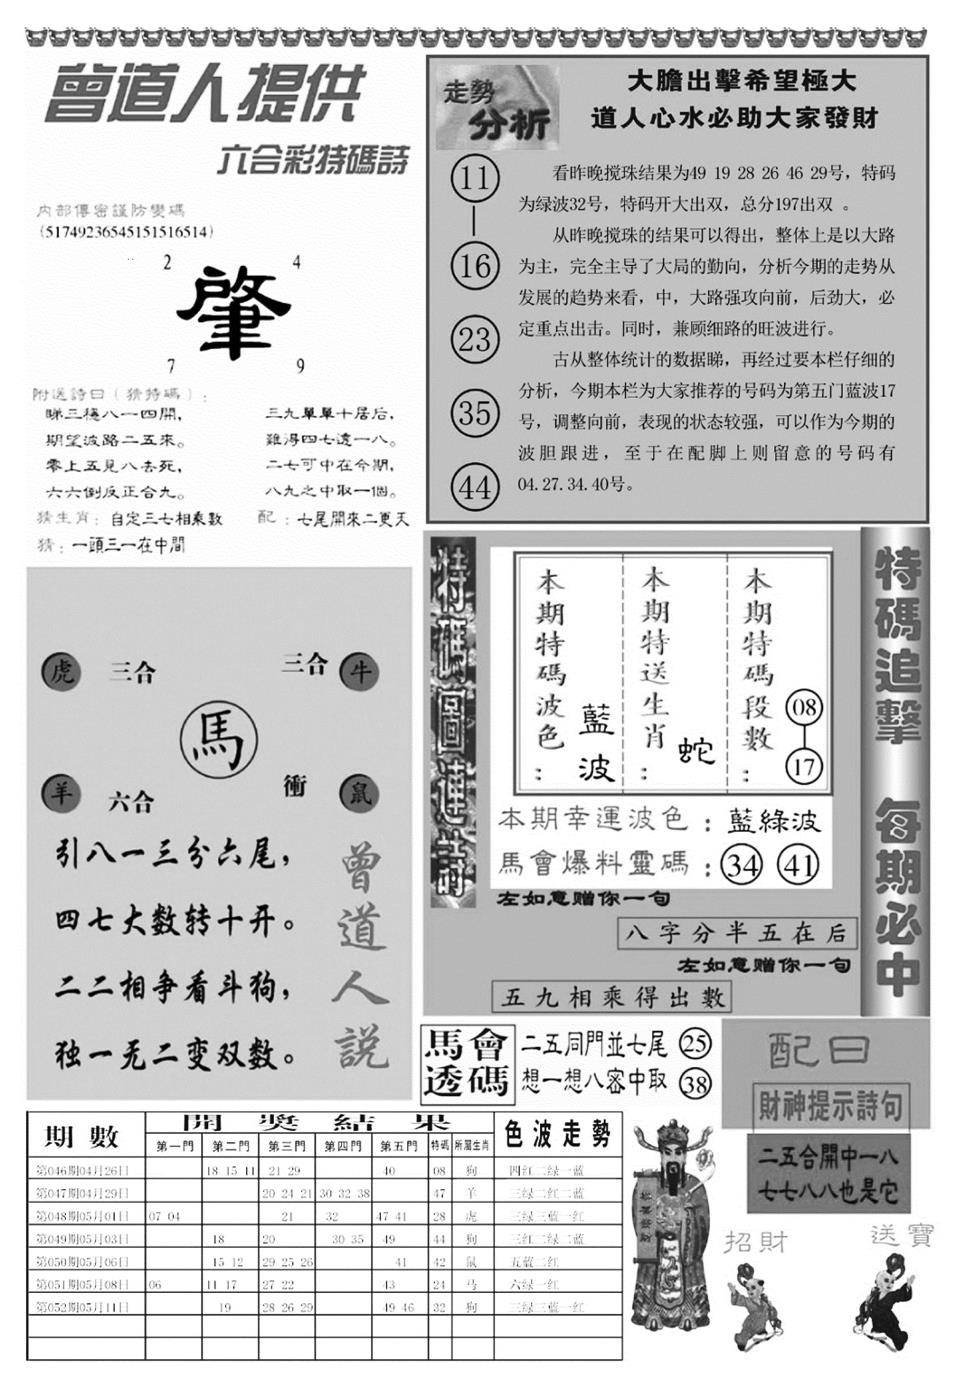 曾道人提供
六合彩特碼詩
内部傳密謹防變碼
(51749236545151516514)
2 4
肇
7 9
附送詩曰(猜特碼):
睇三穩八一四開,
期望波路二五來。
零上五見八去死,
六六倒反正合九。
三九單單十居后,
難得四七遠一八。
二七可中在今期,
八九之中取一個。
猜生肖:自定三七相乘數 配:七尾開來二更天
猜:一頭三一在中間
走勢
分析
大膽出擊希望極大
道人心水必助大家發財
11
16
23
35
44
看昨晚搅珠结果为49 19 28 26 46 29号,特码
为绿波32号,特码开大出双,总分197出双 。
从昨晚搅珠的结果可以得出,整体上是以大路
为主,完全主导了大局的勤向,分析今期的走势从
发展的趋势来看,中,大路强攻向前,后劲大,必
定重点出击。同时,兼顾细路的旺波进行。
古从整体统计的数据睇,再经过要本栏仔细的
分析,今期本栏为大家推荐的号码为第五门蓝波17
号,调整向前,表现的状态较强,可以作为今期的
波胆跟进,至于在配脚上则留意的号码有
04.27.34.40号。
虎 三合 三合 牛
馬
羊 六合 衝 鼠
引八一三分六尾,
四七大数转十开。
二二相争看斗狗,
独一无二变双数。
曾道人説
特碼圖連詩
本期特碼波色:藍波
本期特送生肖:蛇
本期特碼段數:08 17
本期幸運波色:藍綠波
馬會爆料靈碼:34 41
左如意赠你一句
八字分半五在后
左如意赠你一句
五九相乘得出數
特碼追擊 每期必中
馬會
透碼
二五同門並七尾 25
想一想八審中取 38
配曰
財神提示詩句
二五合開中一八
七七八八也是它
招財 送寶
期數 開獎結果 色波走勢
第一門 第二門 第三門 第四門 第五門 特碼 所屬生肖
第046期04月26日 18 15 11 21 29 40 08 狗 四红二绿一蓝
第047期04月29日 20 24 21 30 32 38 47 羊 三绿二红二蓝
第048期05月01日 07 04 21 32 47 41 28 虎 三绿三蓝一红
第049期05月03日 18 20 30 35 49 44 狗 三红二绿二蓝
第050期05月06日 15 12 29 25 26 41 42 鼠 五蓝二红
第051期05月08日 06 11 17 27 22 43 24 马 六绿一红
第052期05月11日 19 28 26 29 49 46 32 狗 三绿三蓝一红